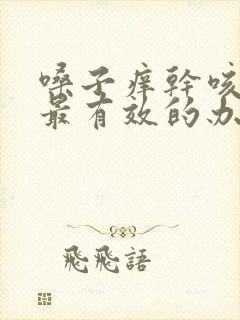 嗓子痒幹咳
最有效的办
飛飛語